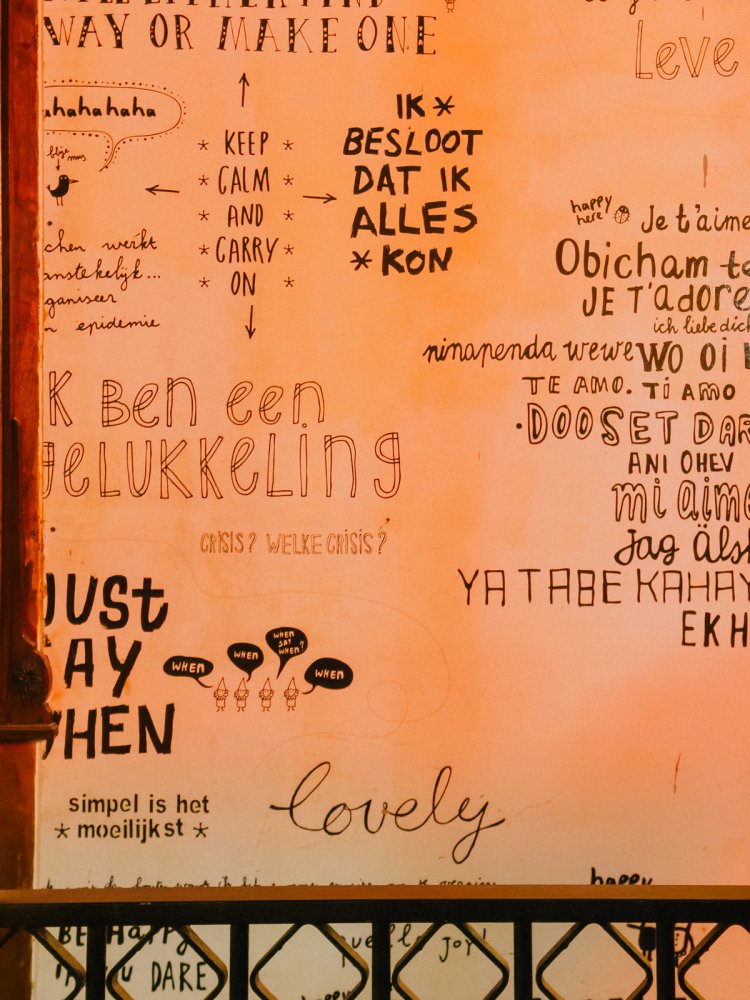 WAY OR MAKE ONE
Leve
hahahaha
blije mus
* KEEP *
* CALM *
* AND *
* CARRY *
* ON *
IK *
BESLOOT
DAT IK
ALLES
* KON
werkt
epidemie
happy
here
Je t'aime
Obicham te
JE T'adore
ich liebe dich
ninapenda wewe WO oi
TE AMO. Ti AMO
DOOSET DAR
ANI OHEV
mi aime
Jag Älsk
YA TABE KAHAY
EKH
IK BEN een
GELUKKELING
CRISIS? WELKE CRISIS?
JUST
SAY
WHEN
WHEN
WHEN
WHEN
SAY
WHEN?
WHEN
simpel is het
* moeilijkst *
lovely
happy
BE Happy
if you DARE
quelle joy!
happy